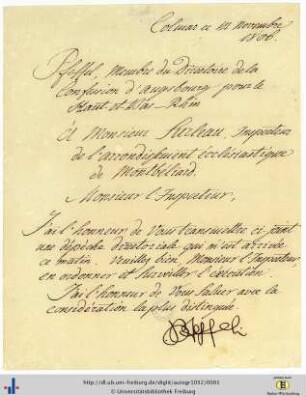 Colmar ce 11 Novembre
1806.
Pfeffel, Membre du Directoire de la
Confession d'Augsbourg pour le
Haut et Bas-Rhin
A Monsieur Inspecteur
de l'arrondissement ecclésiastique
de Montbéliard.
Monsieur l'Inspecteur,
J'ai l'honneur de Vous transmettre ci joint
une dépêche directoriale qui m'est arrivée
ce matin. Veuillez bien, Monsieur l'Inspecteur
en ordonner et surveiller l'exécution.
J'ai l'honneur de Vous saluer avec la
considération la plus distinguée
Pfeffel
http://dl.ub.uni-freiburg.de/diglit/autogr1032/0001
© Universitätsbibliothek Freiburg